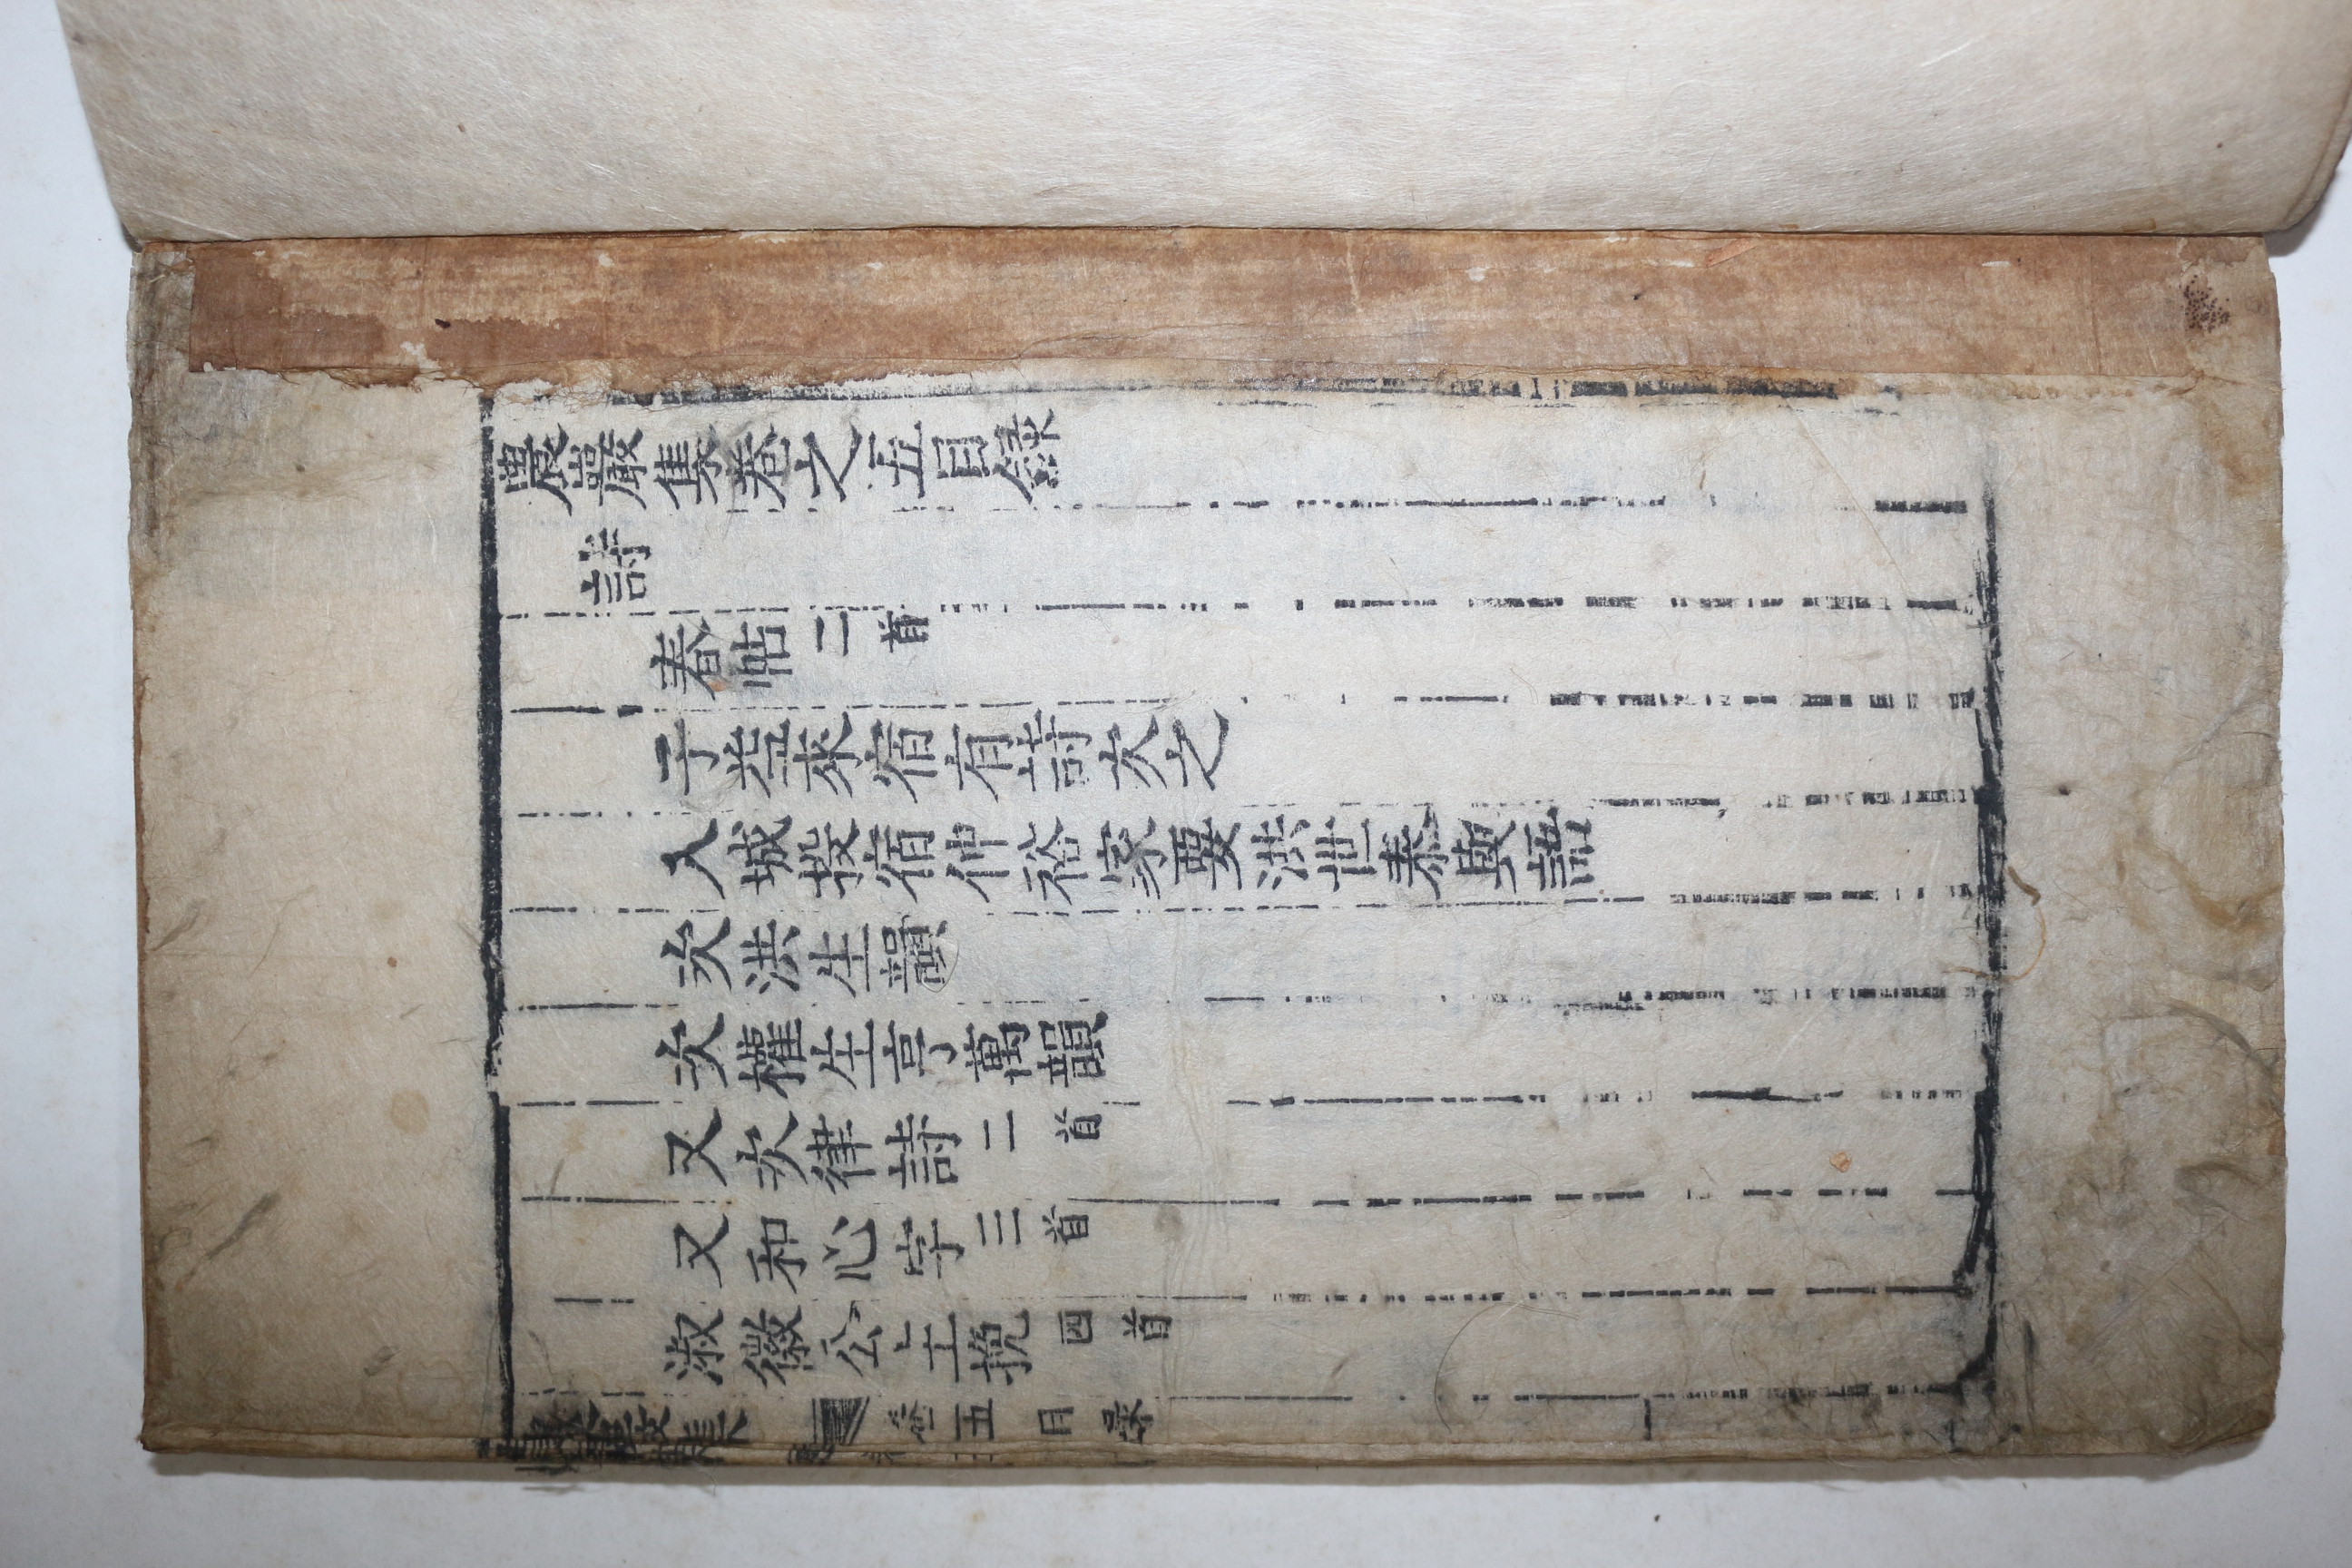 農巖集卷之五目錄
詩
春帖二首
子益來宿有詩次之
入城投宿仲裕家要洪世泰與語
次洪生韻
次權生亨萬韻
又次律詩二首
又和心字三首
淑徽公主挽四首
農巖集 卷五 目录 一